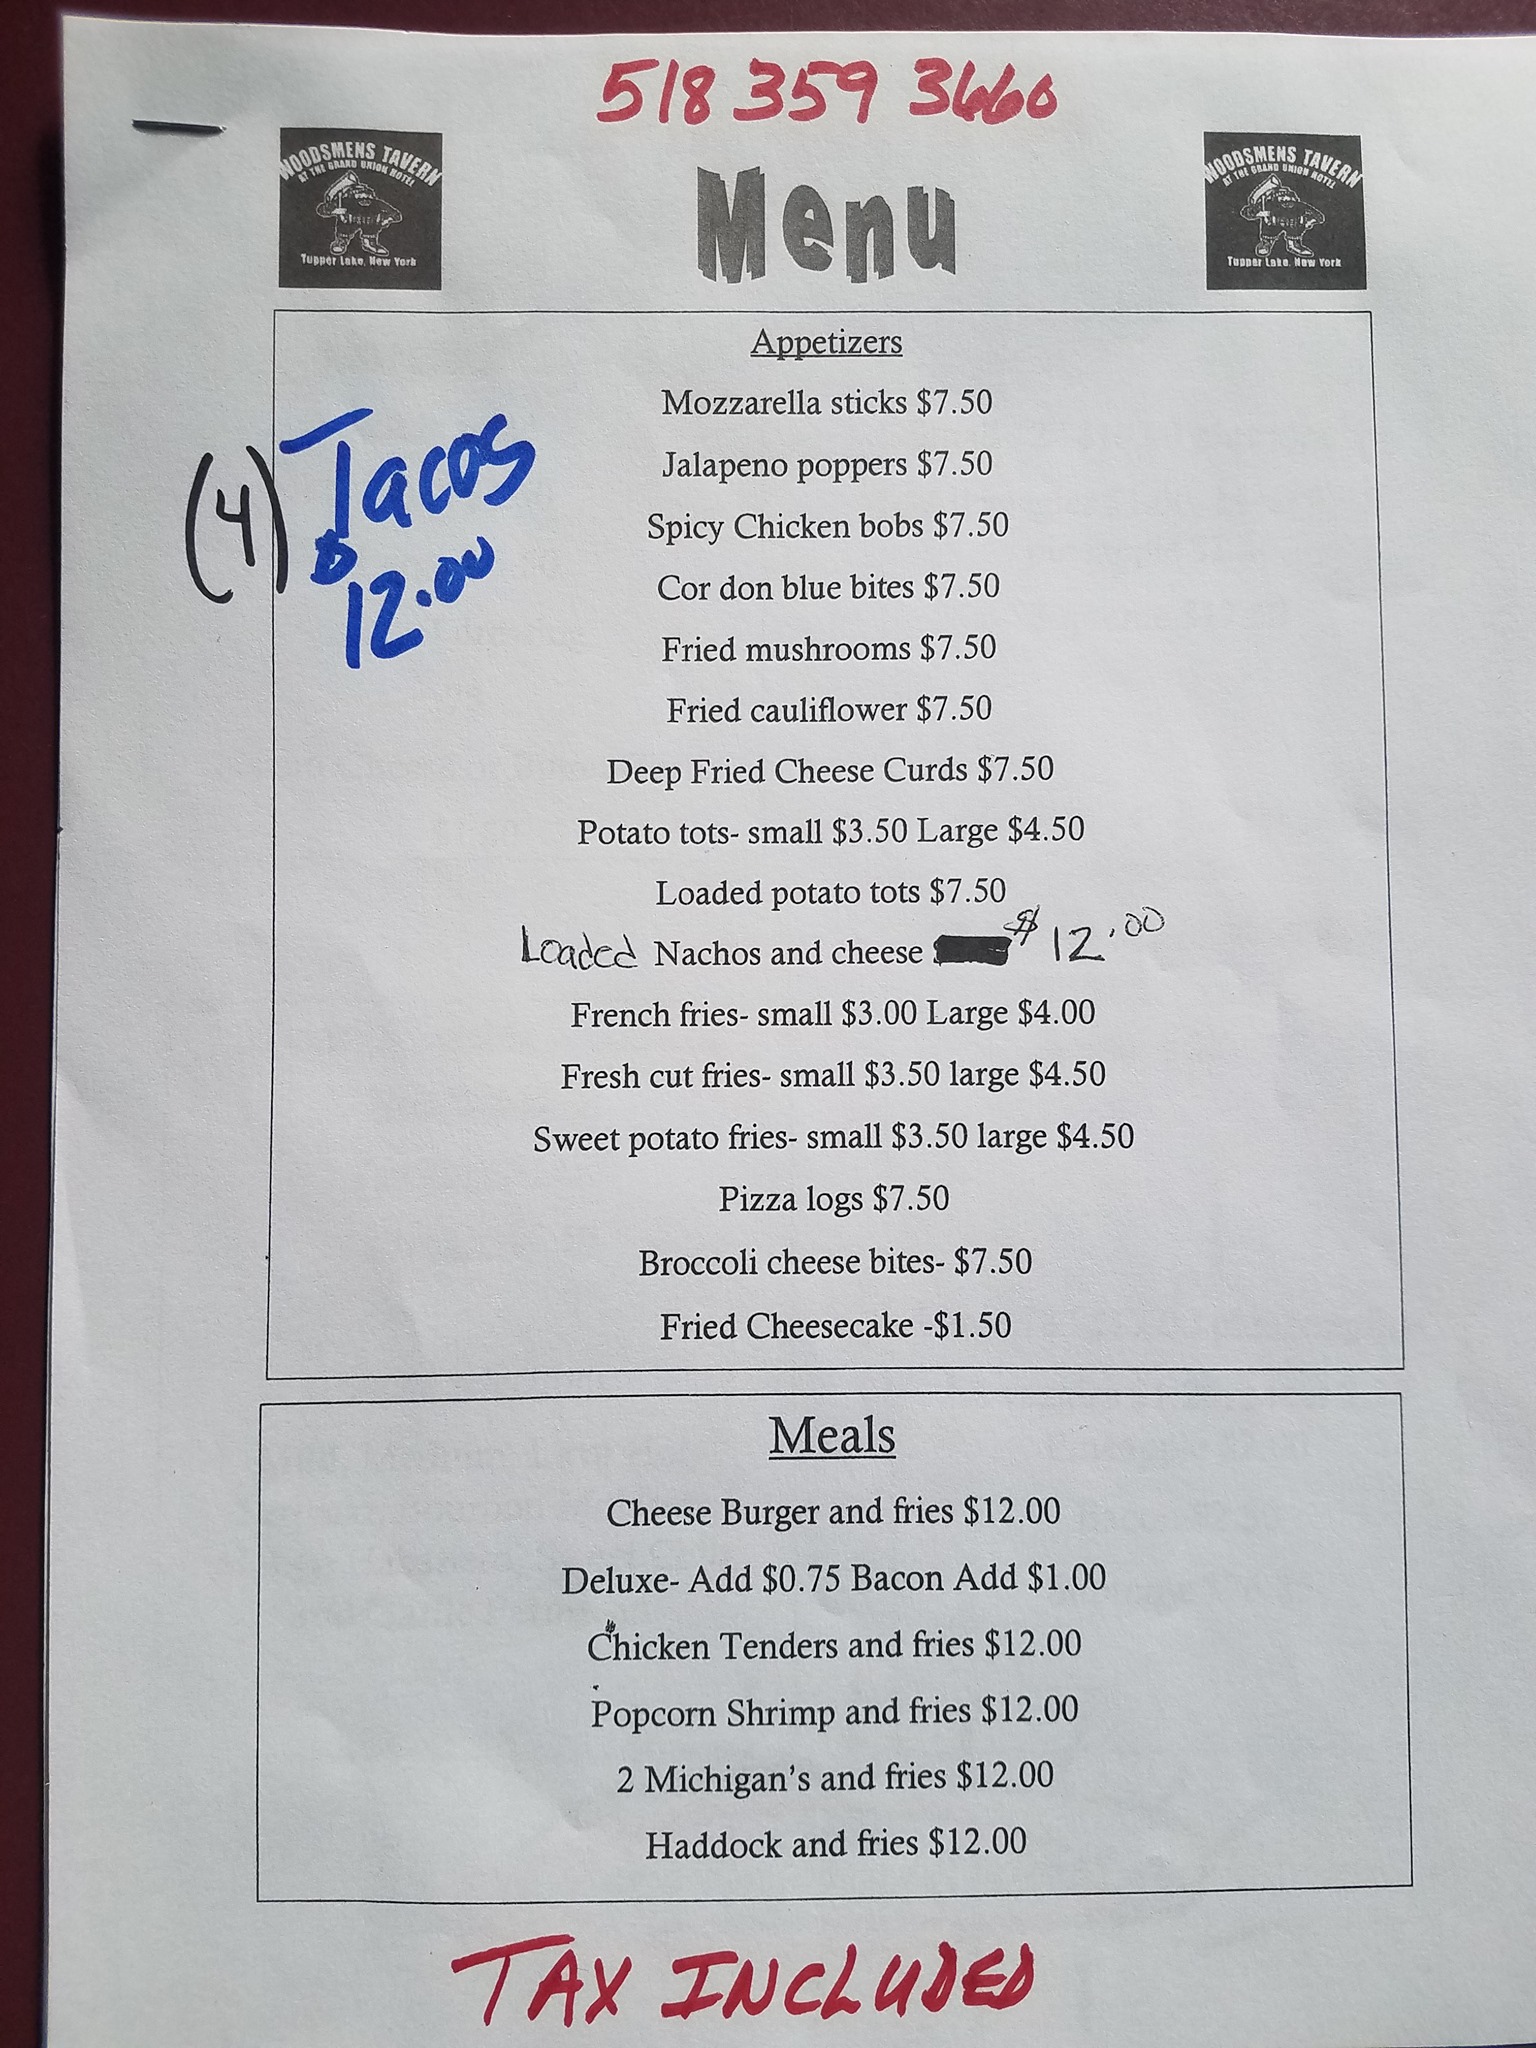 518 359 3660
WOODSMENS TAVERN
AT THE GRAND UNION HOTEL
Tupper Lake, New York
Menu
WOODSMENS TAVERN
AT THE GRAND UNION HOTEL
Tupper Lake, New York
Appetizers
Mozzarella sticks $7.50
(4) Tacos
$
12.00
Jalapeno poppers $7.50
Spicy Chicken bobs $7.50
Cor don blue bites $7.50
Fried mushrooms $7.50
Fried cauliflower $7.50
Deep Fried Cheese Curds $7.50
Potato tots- small $3.50 Large $4.50
Loaded potato tots $7.50
Loaded Nachos and cheese $ 12.00
French fries- small $3.00 Large $4.00
Fresh cut fries- small $3.50 large $4.50
Sweet potato fries- small $3.50 large $4.50
Pizza logs $7.50
Broccoli cheese bites- $7.50
Fried Cheesecake -$1.50
Meals
Cheese Burger and fries $12.00
Deluxe- Add $0.75 Bacon Add $1.00
Chicken Tenders and fries $12.00
Popcorn Shrimp and fries $12.00
2 Michigan's and fries $12.00
Haddock and fries $12.00
TAX INCLUDED